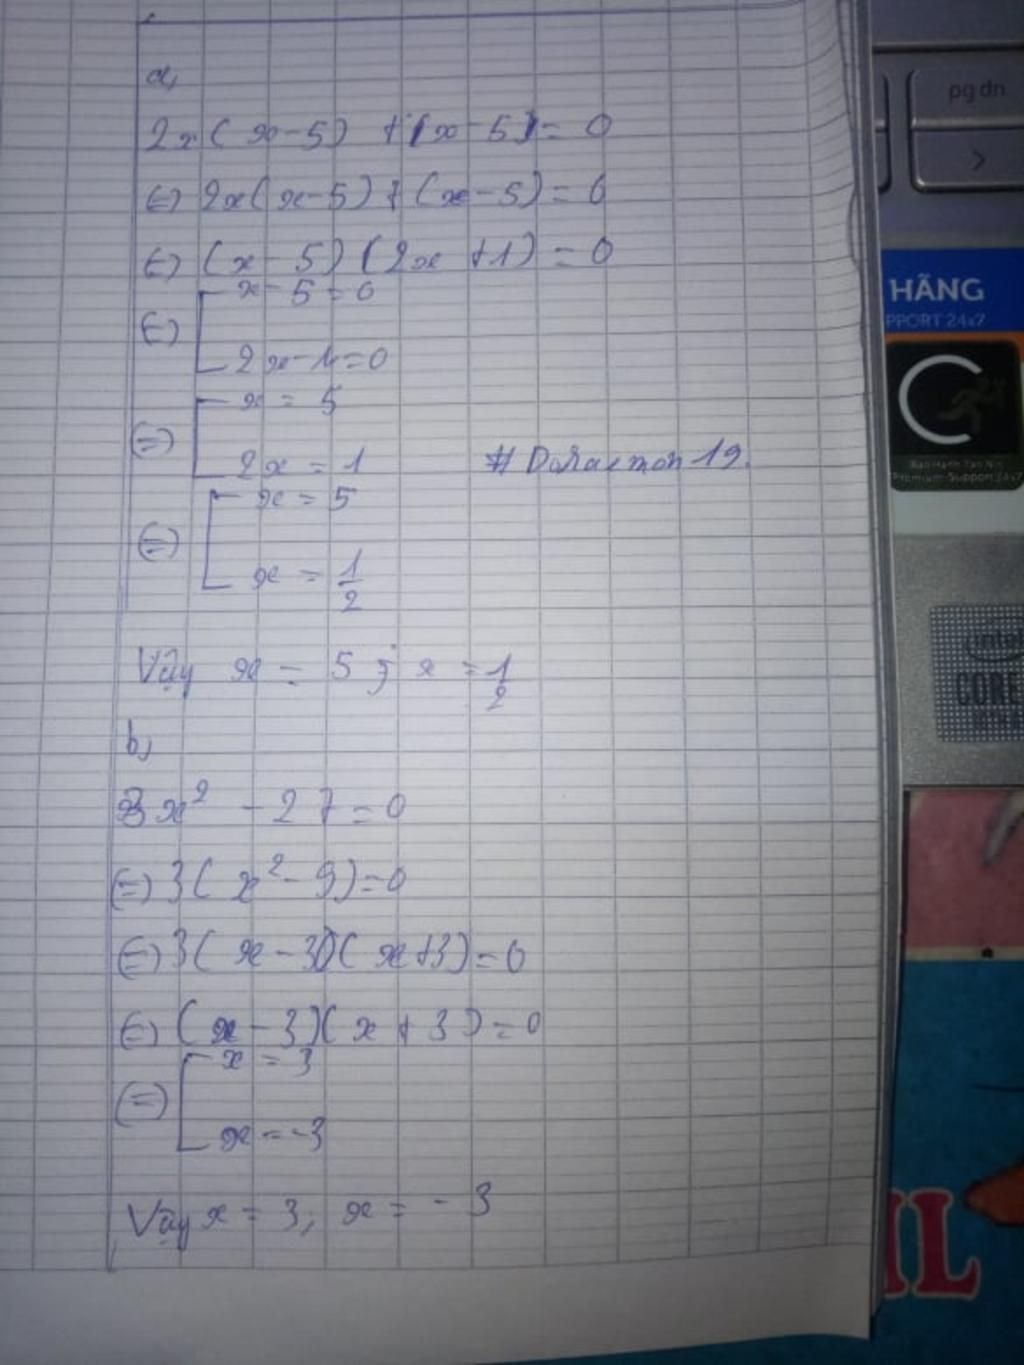 a,
2x(x-5) + (x-5) = 0
⇔ 2x(x-5) + (x-5) = 0
⇔ (x-5)(2x+1) = 0
⇔ [ x-5=0
2x-1=0
⇔ [ x = 5
2x = 1
# Doraemon19.
⇔ [ x = 5
x = 1/2
Vậy x = 5; x = 1/2
b,
3x² - 27 = 0
⇔ 3(x²-9)=0
⇔ 3(x-3)(x+3)=0
⇔ (x-3)(x+3)=0
⇔ [ x = 3
x = -3
Vậy x = 3; x = -3
pg dn
>
HÃNG
PPORT 24x7
Premium-Support 24x7
intel
CORE
IL